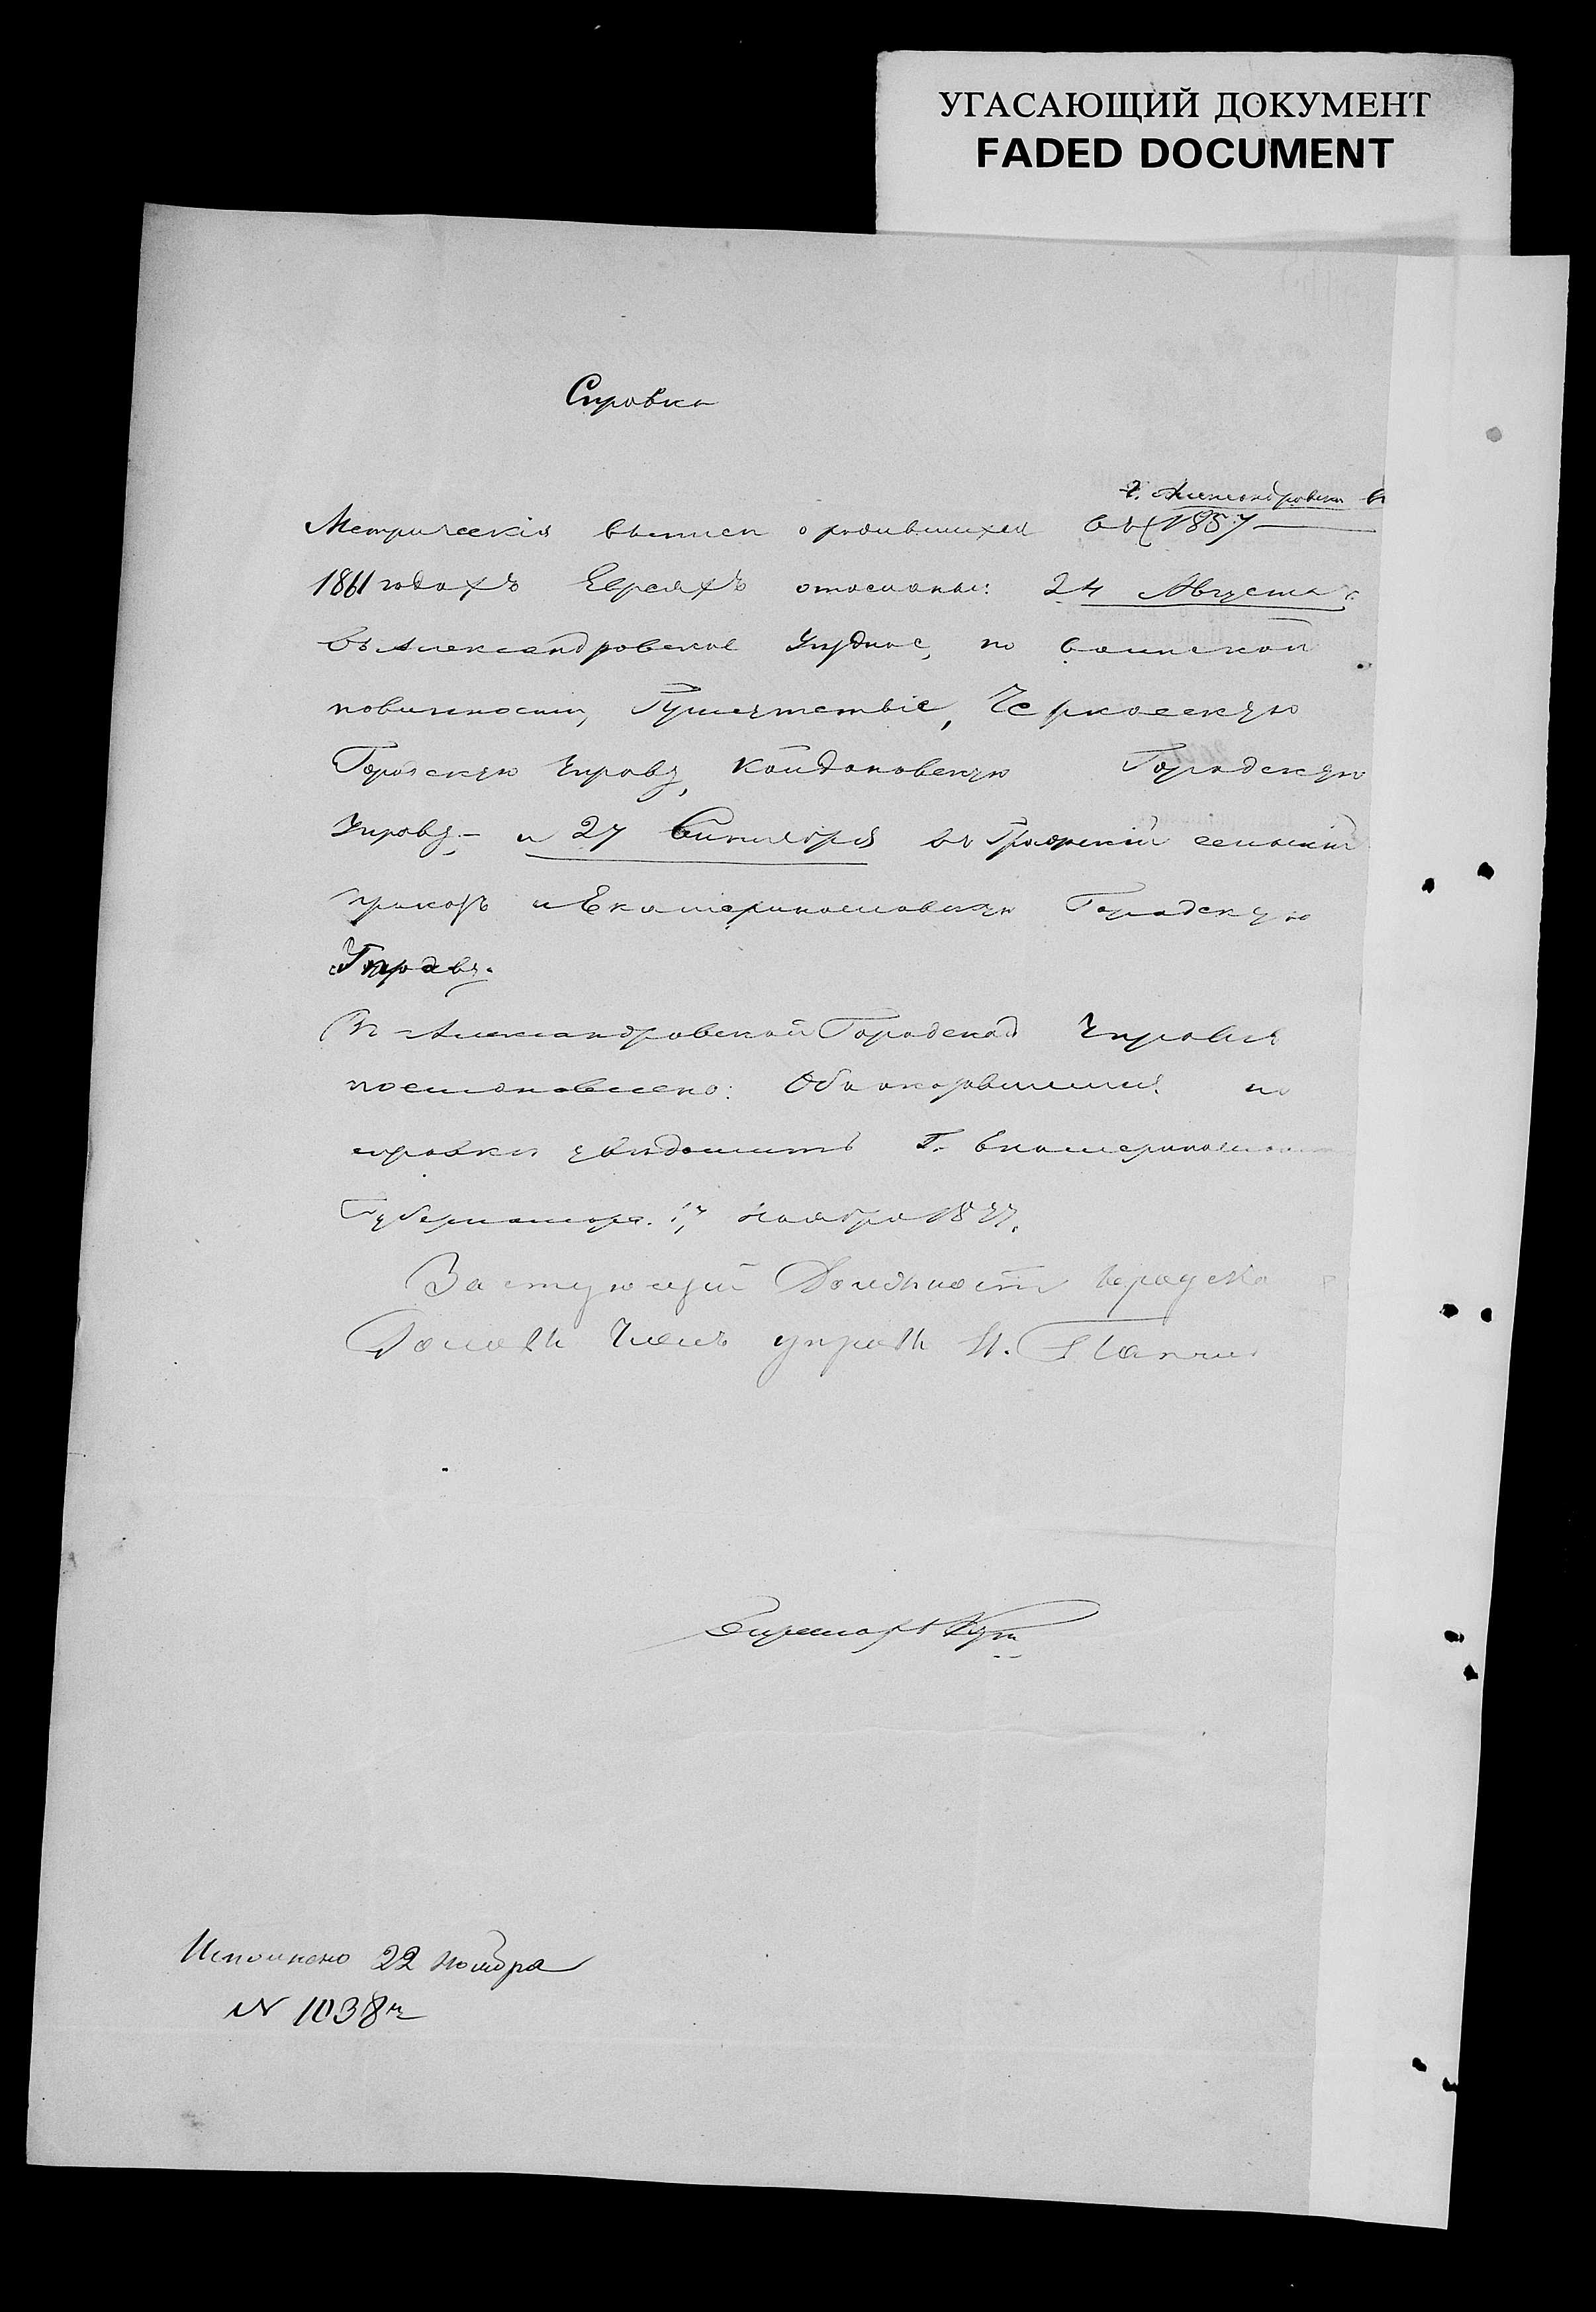 УГАСАЮЩИЙ ДОКУМЕНТ
FADED DOCUMENT
Справка
г. Александровск в
Метрическія выписи о родившихся въ 1857 —
1861 годахъ Евреяхъ отосланы: 24 Августа
въ Александровское по воинской
повинности, Присутствіе, Черкасскую
Городскую Управу, Койдановскую Городскую
Управу — и 27 Сентября въ сельскій
приказъ и Екатеринославскую Городскую
Управу.
Въ Александровской Городской Управѣ
постановлено: Объ оказавшемся по
справкѣ увѣдомить Г. Екатеринославск
Губернатора. Ноября 1877.
Заступающий Должность Городска
Головы Членъ управы
Исполнено 22 Ноября
№ 1038